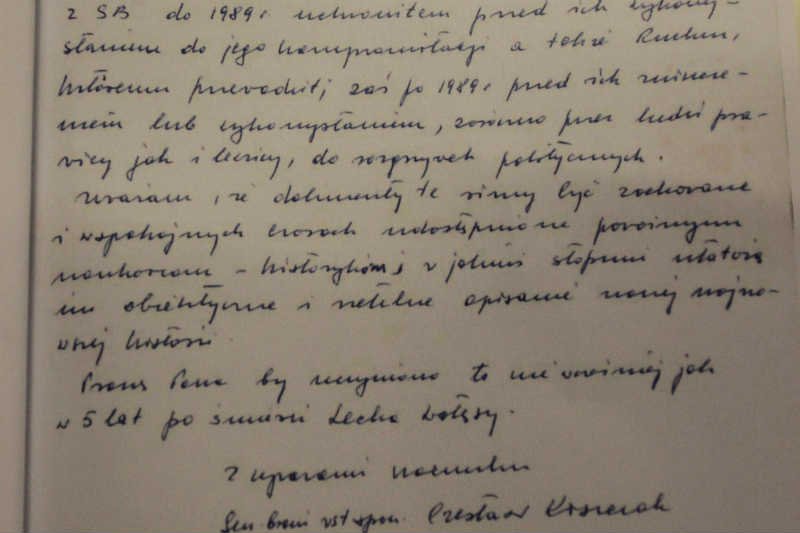 z SB do 1989 r uchroniłem przed ich wykorzy-
staniem do jego kompromitacji a także Ruchu,
któremu przewodził, zaś po 1989 r przed ich zniszcze-
niem lub wykorzystaniem, zarówno przez ludzi pra-
wicy jak i lewicy, do rozgrywek politycznych.
Uważam, że dokumenty te winny być zachowane
i w spokojnych czasach udostępnione poważnym
naukowcom - historykom i w jakimś stopniu ułatwią
im obiektywne i rzetelne opisanie naszej najno-
wszej historii.
Proszę Pana by uczyniono to nie wcześniej jak
w 5 lat po śmierci Lecha Wałęsy.
Z wyrazami szacunku
Gen. broni w st. spocz. Czesław Kiszczak